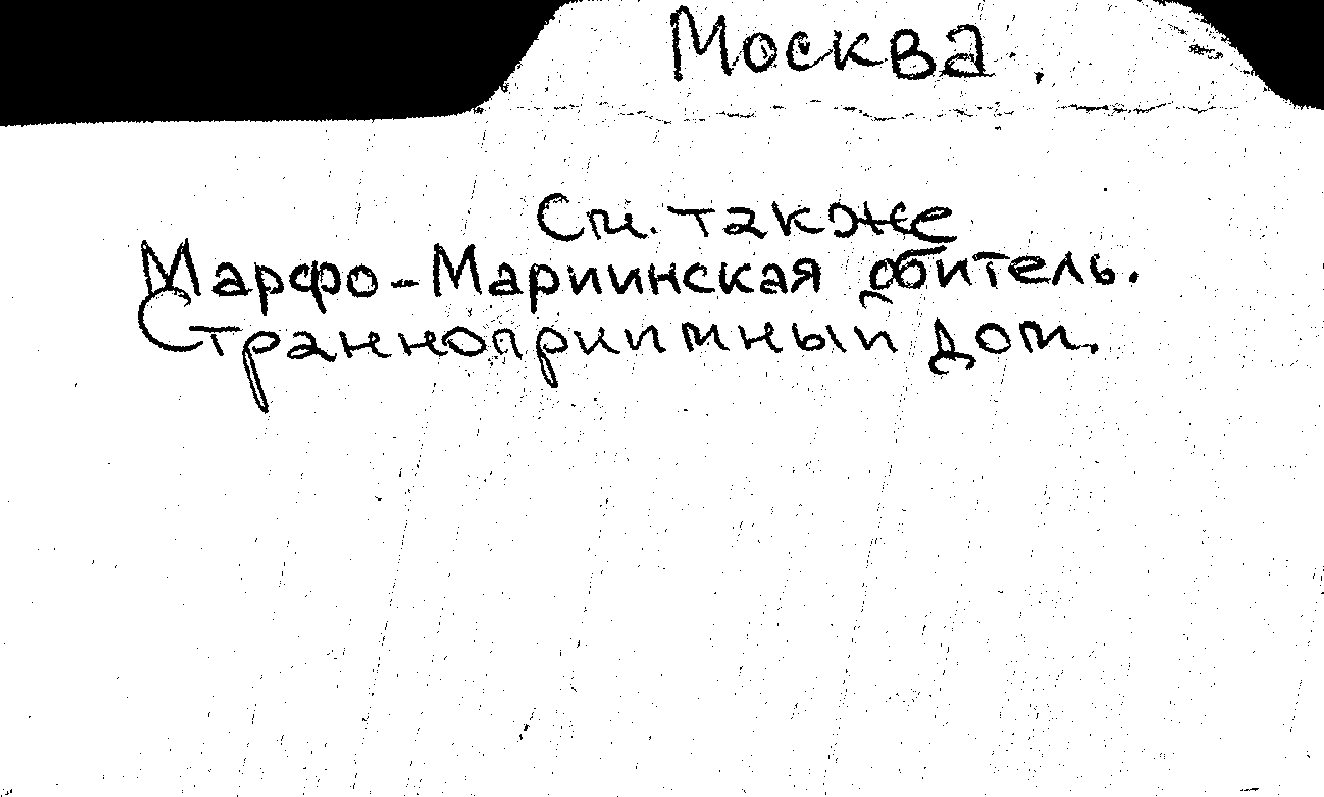 Москва.
См. также
Марфо-Мариинская обитель.
Странноприимный дом.